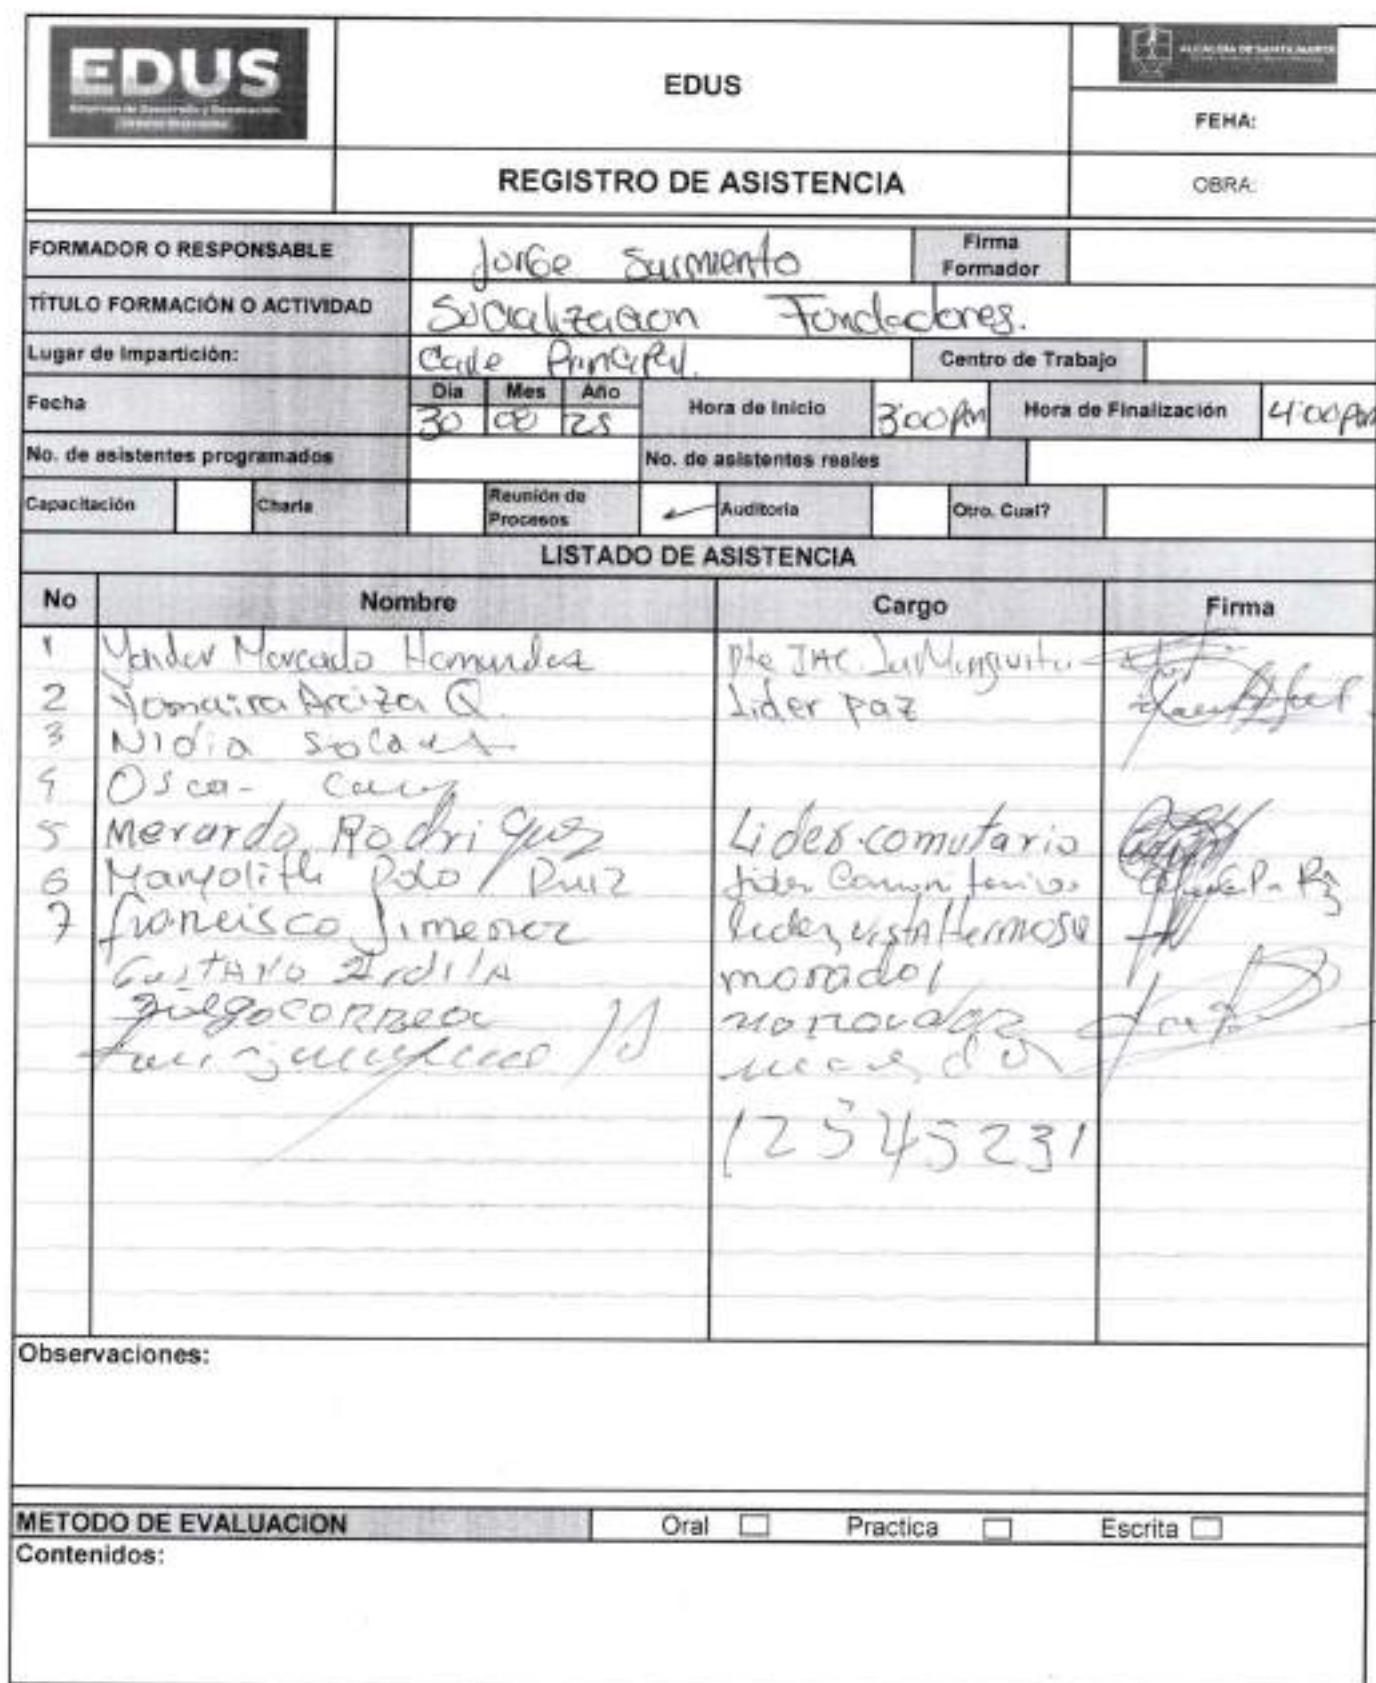 EDUS
EDUS
ALCALDÍA DE SANTA MARTA
FEHA:
REGISTRO DE ASISTENCIA
OBRA:
FORMADOR O RESPONSABLE Jorge Sarmiento Firma Formador
TÍTULO FORMACIÓN O ACTIVIDAD Socialización Fundadores.
Lugar de Impartición: Calle Principal. Centro de Trabajo
Fecha Dia Mes Año Hora de Inicio 3:00 Pm Hora de Finalización 4:00 Pm
30 08 25
No. de asistentes programados No. de asistentes reales
Capacitación Charla Reunión de Procesos Auditoria Otro. Cual?
LISTADO DE ASISTENCIA
No Nombre Cargo Firma
1 Mercado Pte JAC
2 Yomaira Ariza Q. Lider paz
3 Nidia
4
5 Merardo Rodriguez Lider comutario
6 Polo Ruiz Lider
7 francisco Jimenez Vista Hermosa
GustAvo ArdilA morador
CORREA
12545231
Observaciones:
METODO DE EVALUACION Oral Practica Escrita
Contenidos: